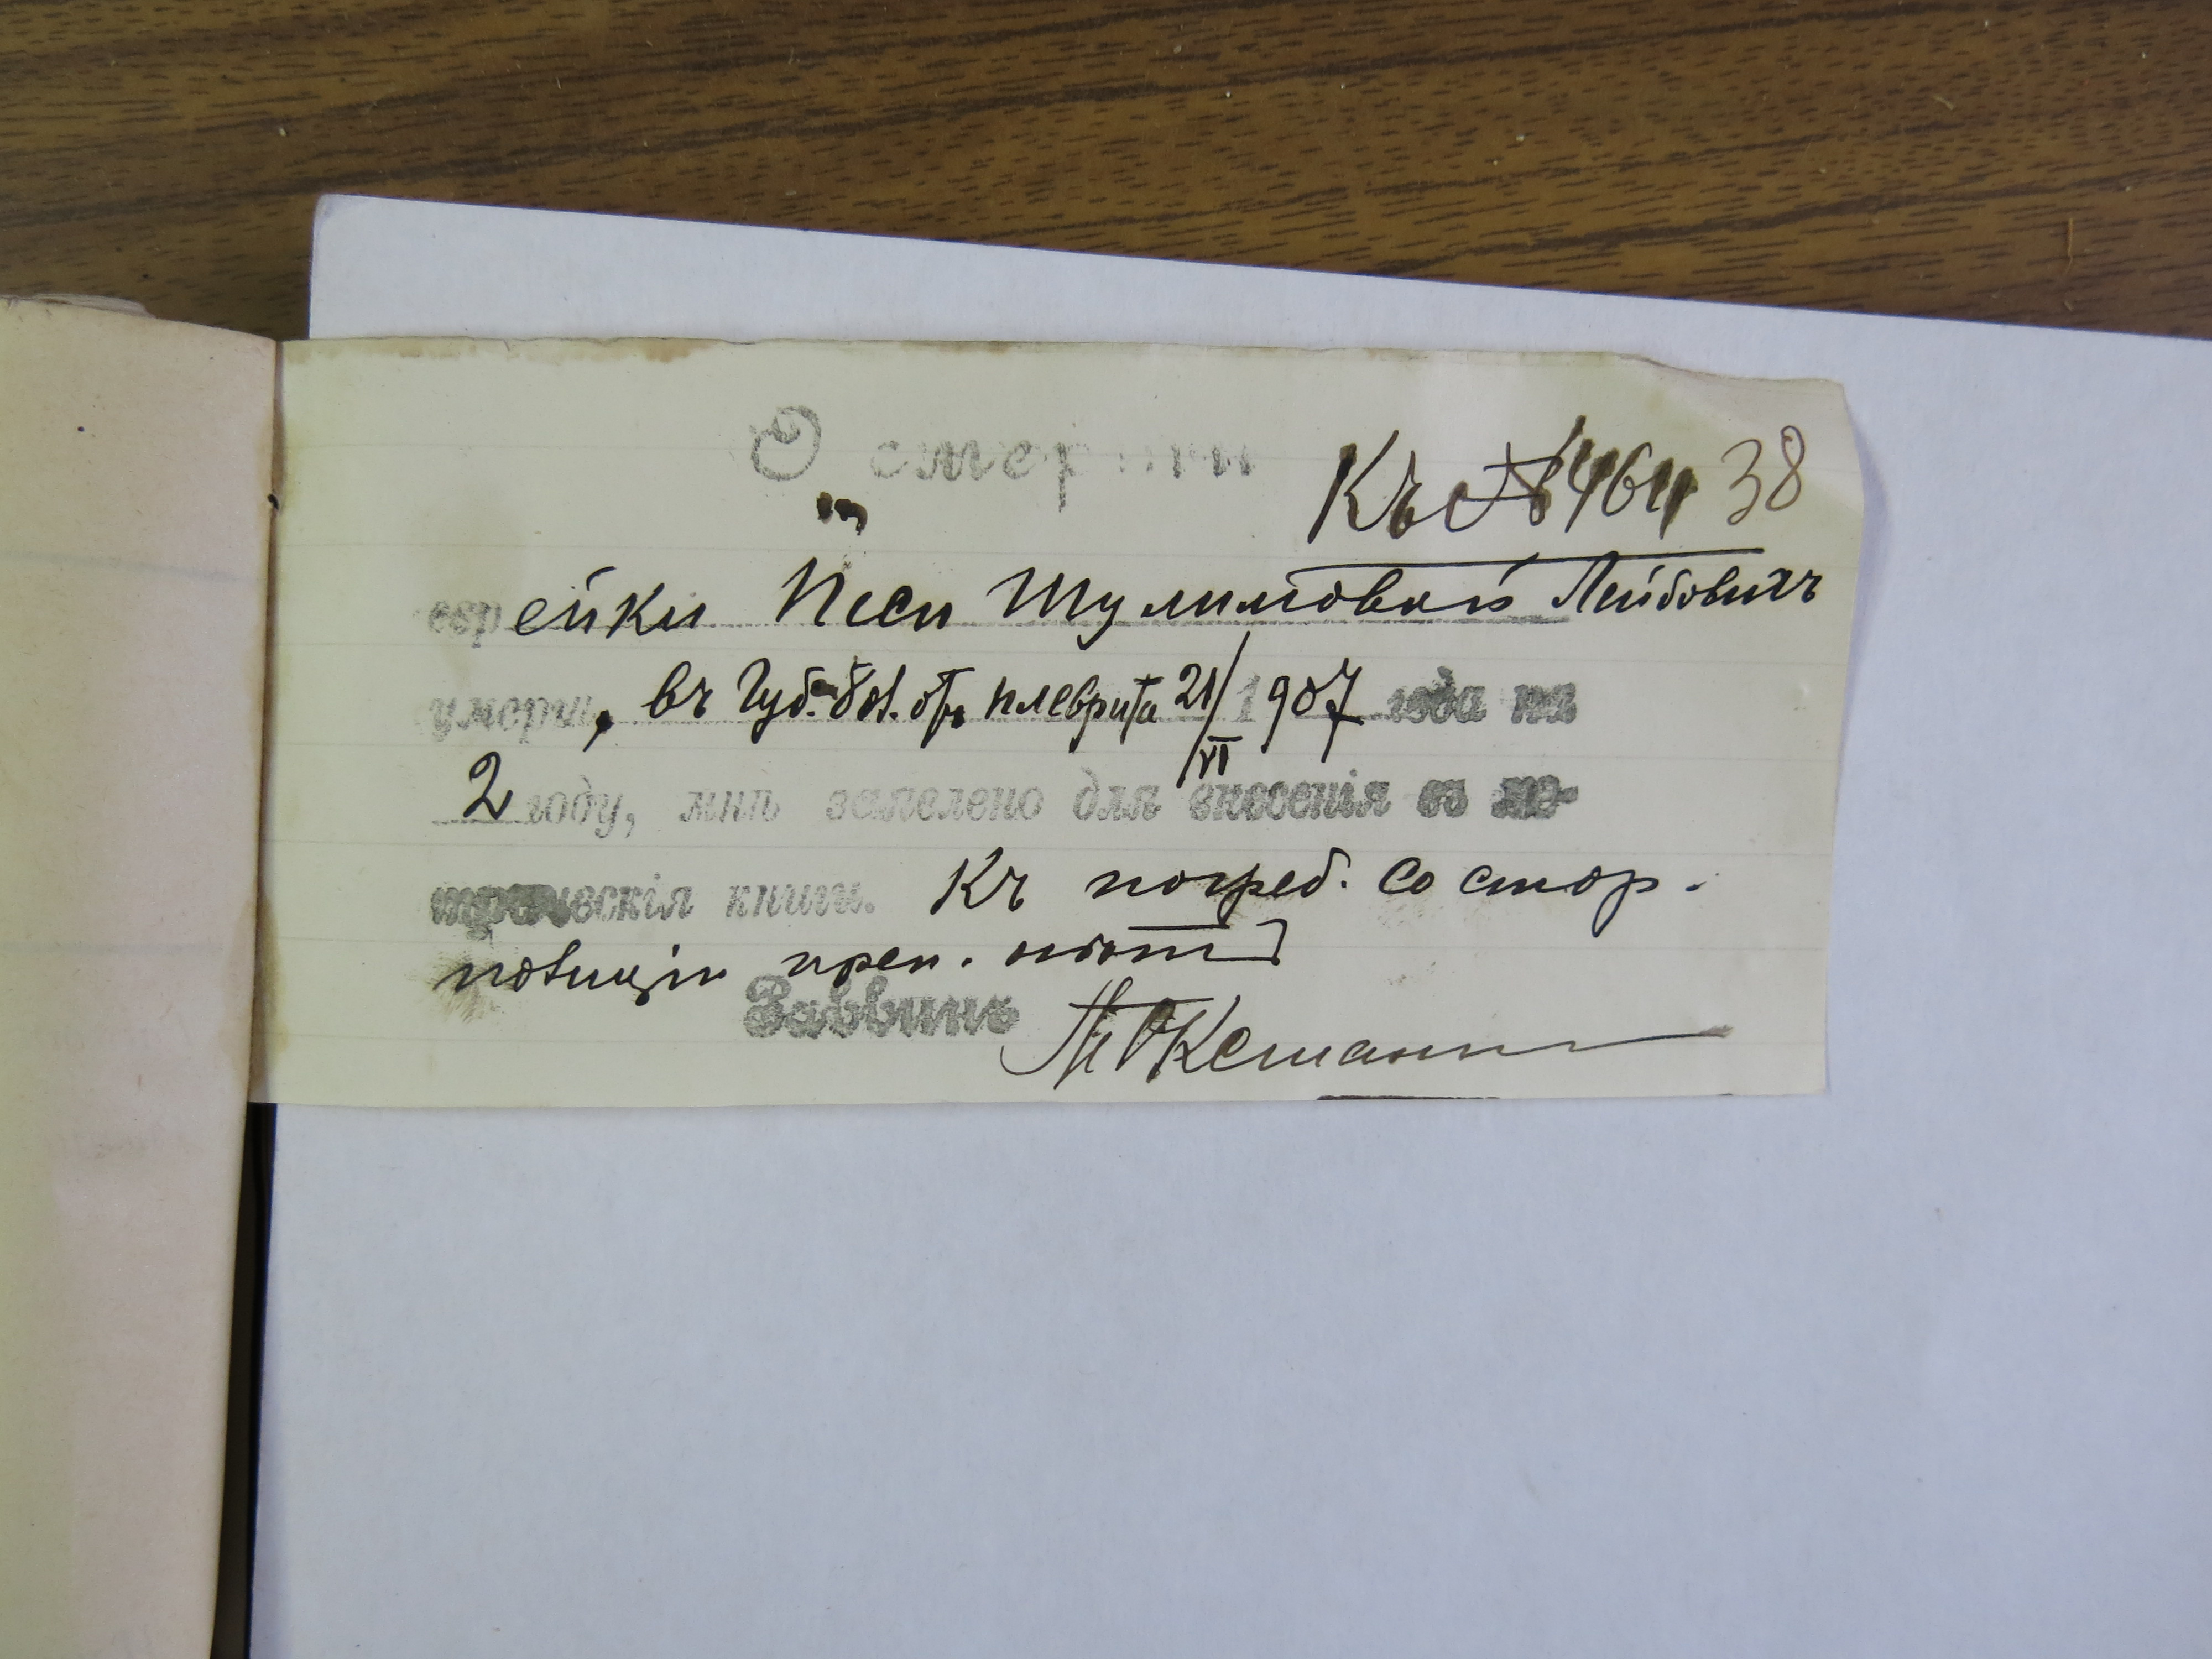 О смерти
Къ № 4611 38
еврейки Песи Шулимовой Лейбовичъ
умерш, въ Губ. бол. отъ плеврита 21/VI 1907 года на
2 году, мнѣ заявлено для внесенія въ ме-
трическія книги. Къ погреб. со стор.
полиціи преп. нѣтъ
Раввинъ